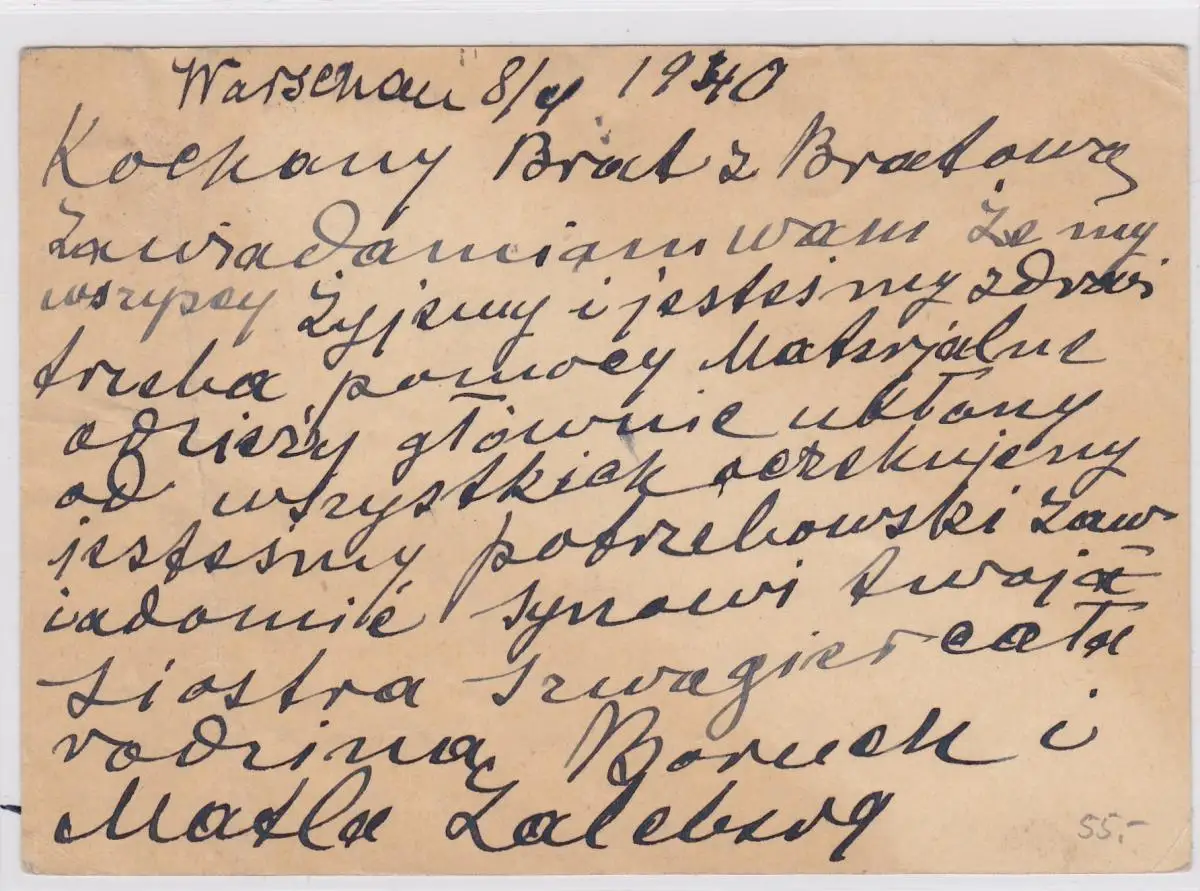 Warschau 8/V 1940
Kochany Brat z Bratową
Zawiadamiam wam że my
wszyscy żyjemy i jesteśmy zdrowi
trzeba pomocy Materjalne
odzieży głównie ukłony
od wszystkich oczekujemy
jesteśmy potrzebowski zaw
iadomić synowi twoja
siostra szwagier cała
rodzina Boruch i
Matla Zalcberg
55.-